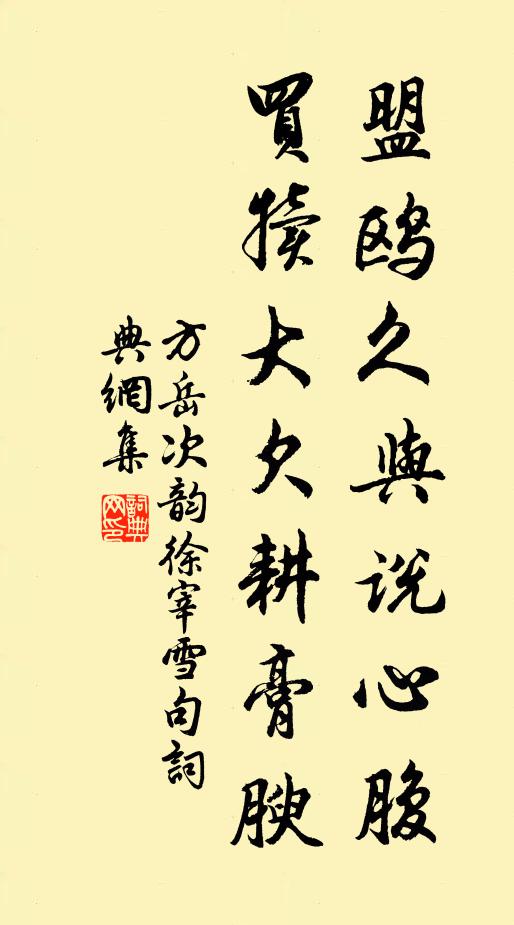 盟鸥久與说心腹
買犢大欠耕膏腴
方岳次韵徐宰雪句詞
典網集
詞典网印